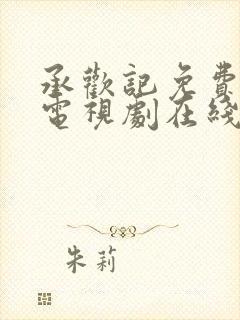 承歡記免費
電視劇在綫
朱莉